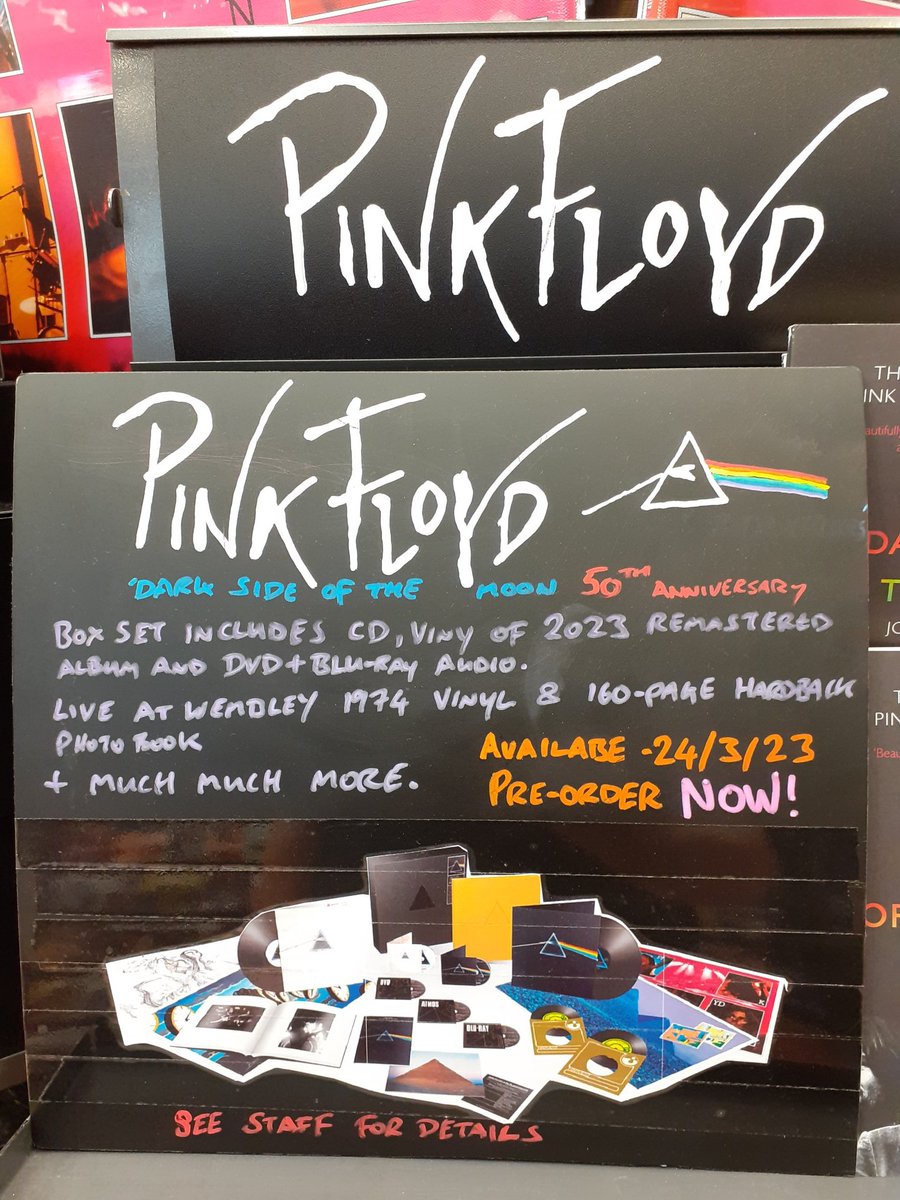 PINK FLOYD
PINK FLOYD
'DARK SIDE OF THE MOON 50TH ANNIVERSARY
BOX SET INCLUDES CD, VINY OF 2023 REMASTERED
ALBUM AND DVD + BLU-RAY AUDIO.
LIVE AT WEMBLEY 1974 VINYL & 160-PAGE HARDBACK
PHOTO BOOK
+ MUCH MUCH MORE.
AVAILABE - 24/3/23
PRE-ORDER NOW!
DVD
ATMOS
BLU-RAY
YD
SEE STAFF FOR DETAILS
N
TH
INK
autifully
DA
T
JO
T
PIN
'Beau
OF